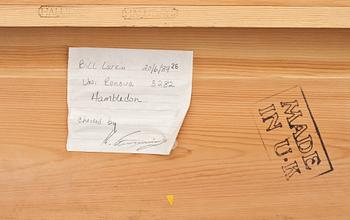 Bill Larkin 20/6/89 26
Uni. Renova 3282
Hambledon
checked by
MADE
IN U.K